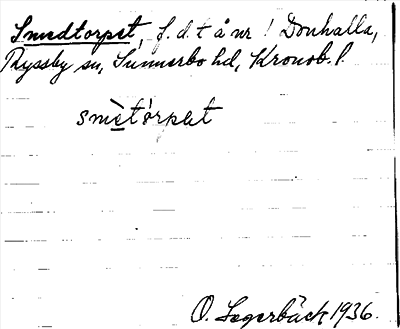 Smedtorpet, f.d. t å nr 1 Donhalla,
Ryssby sn, Sunnerbo hd, Kronob. l.
smètórpet
O. Segerbäck 1936.